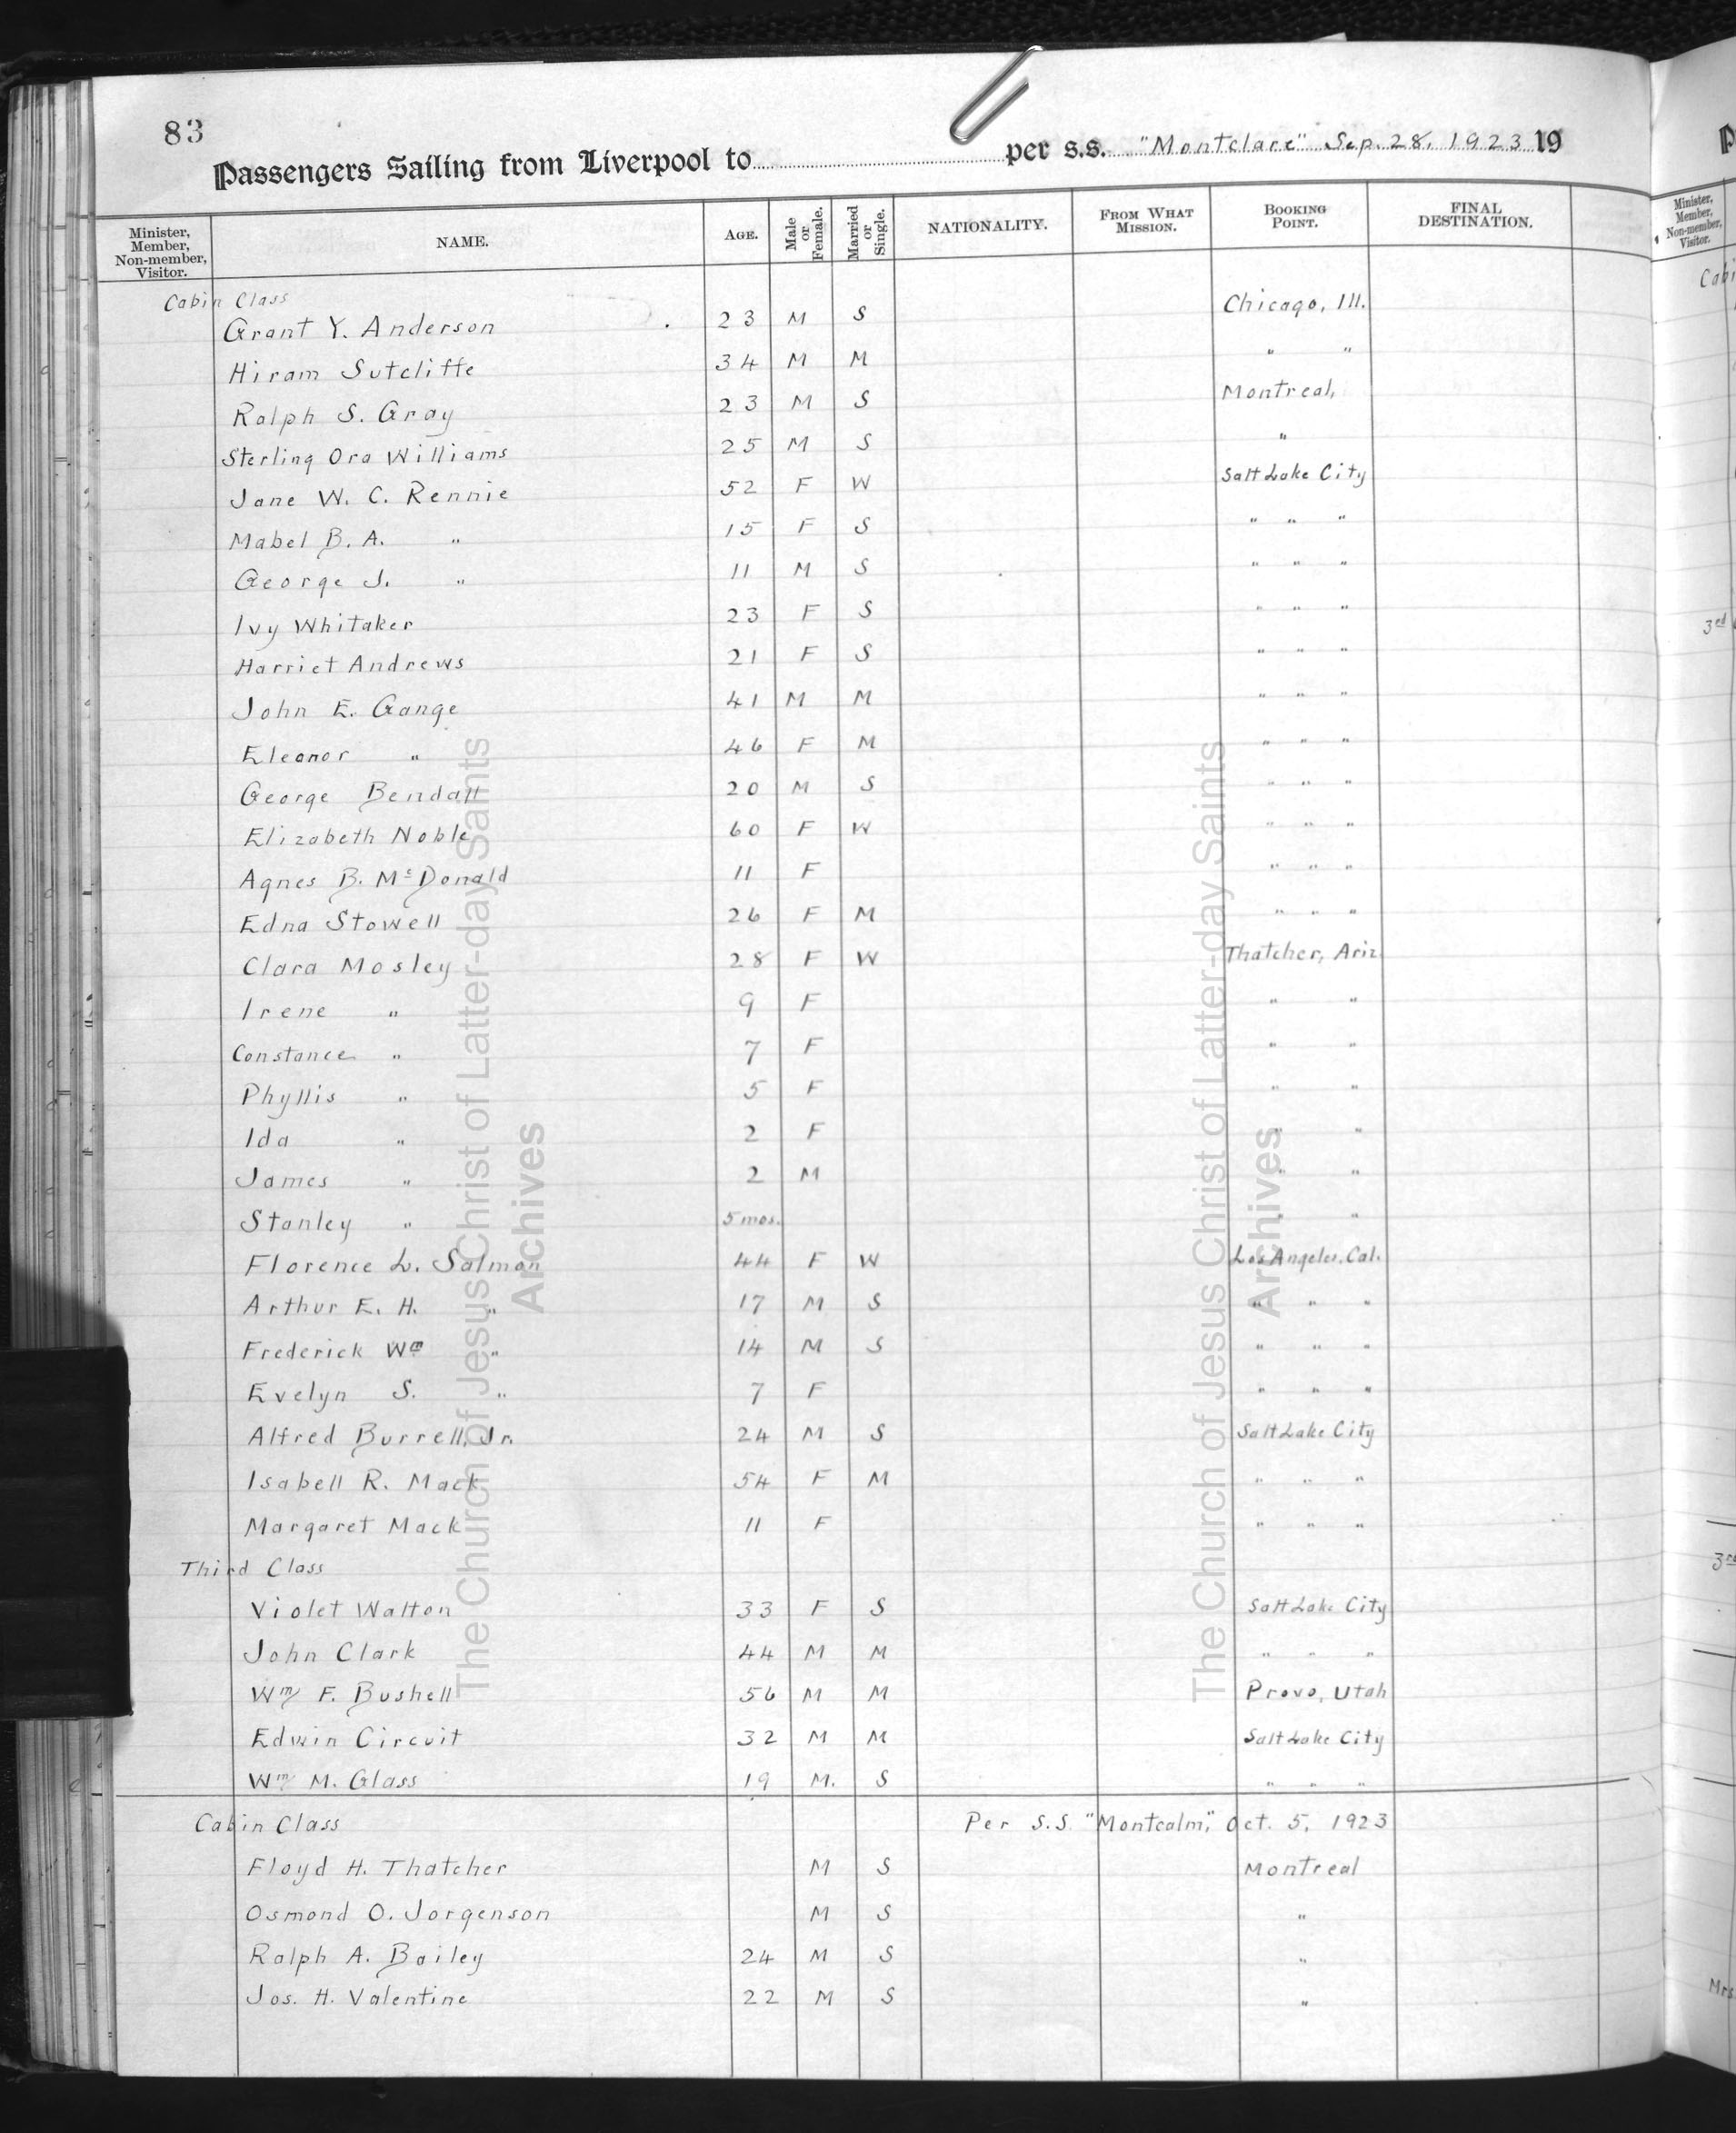 83
Passengers Sailing from Liverpool to per s.s. "Montclare" Sep. 28, 1923 19
Minister, Member, Non-member, Visitor. NAME. AGE. Male or Female. Married or Single. NATIONALITY. FROM WHAT MISSION. BOOKING POINT. FINAL DESTINATION.
Cabin Class
Grant Y. Anderson 23 M S Chicago, Ill.
Hiram Sutcliffe 34 M M " "
Ralph S. Gray 23 M S Montreal,
Sterling Ora Williams 25 M S "
Jane W. C. Rennie 52 F W Salt Lake City
Mabel B. A. " 15 F S " " "
George J. " 11 M S " " "
Ivy Whitaker 23 F S " " "
Harriet Andrews 21 F S " " "
John E. Gange 41 M M " " "
Eleanor " 46 F M " " "
George Bendall 20 M S " " "
Elizabeth Noble 60 F W " " "
Agnes B. McDonald 11 F " " "
Edna Stowell 26 F M " " "
Clara Mosley 28 F W Thatcher, Ariz
Irene " 9 F " "
Constance " 7 F " "
Phyllis " 5 F " "
Ida " 2 F " "
James " 2 M " "
Stanley " 5 mos. " "
Florence L. Salmon 44 F W Los Angeles, Cal.
Arthur E. H. " 17 M S " " "
Frederick Wm " 14 M S " " "
Evelyn S. " 7 F " " "
Alfred Burrell, Jr. 24 M S Salt Lake City
Isabell R. Mack 54 F M " " "
Margaret Mack 11 F " " "
Third Class
Violet Walton 33 F S Salt Lake City
John Clark 44 M M " " "
Wm F. Bushell 56 M M Provo, Utah
Edwin Circuit 32 M M Salt Lake City
Wm M. Glass 19 M. S " " "
Cabin Class Per S.S. "Montcalm," Oct. 5, 1923
Floyd H. Thatcher M S Montreal
Osmond O. Jorgenson M S "
Ralph A. Bailey 24 M S "
Jos. H. Valentine 22 M S "
The Church of Jesus Christ of Latter-day Saints
Archives
The Church of Jesus Christ of Latter-day Saints
Archives
Minister, Member, Non-member, Visitor.
Cabi
3rd
3rd
Mrs